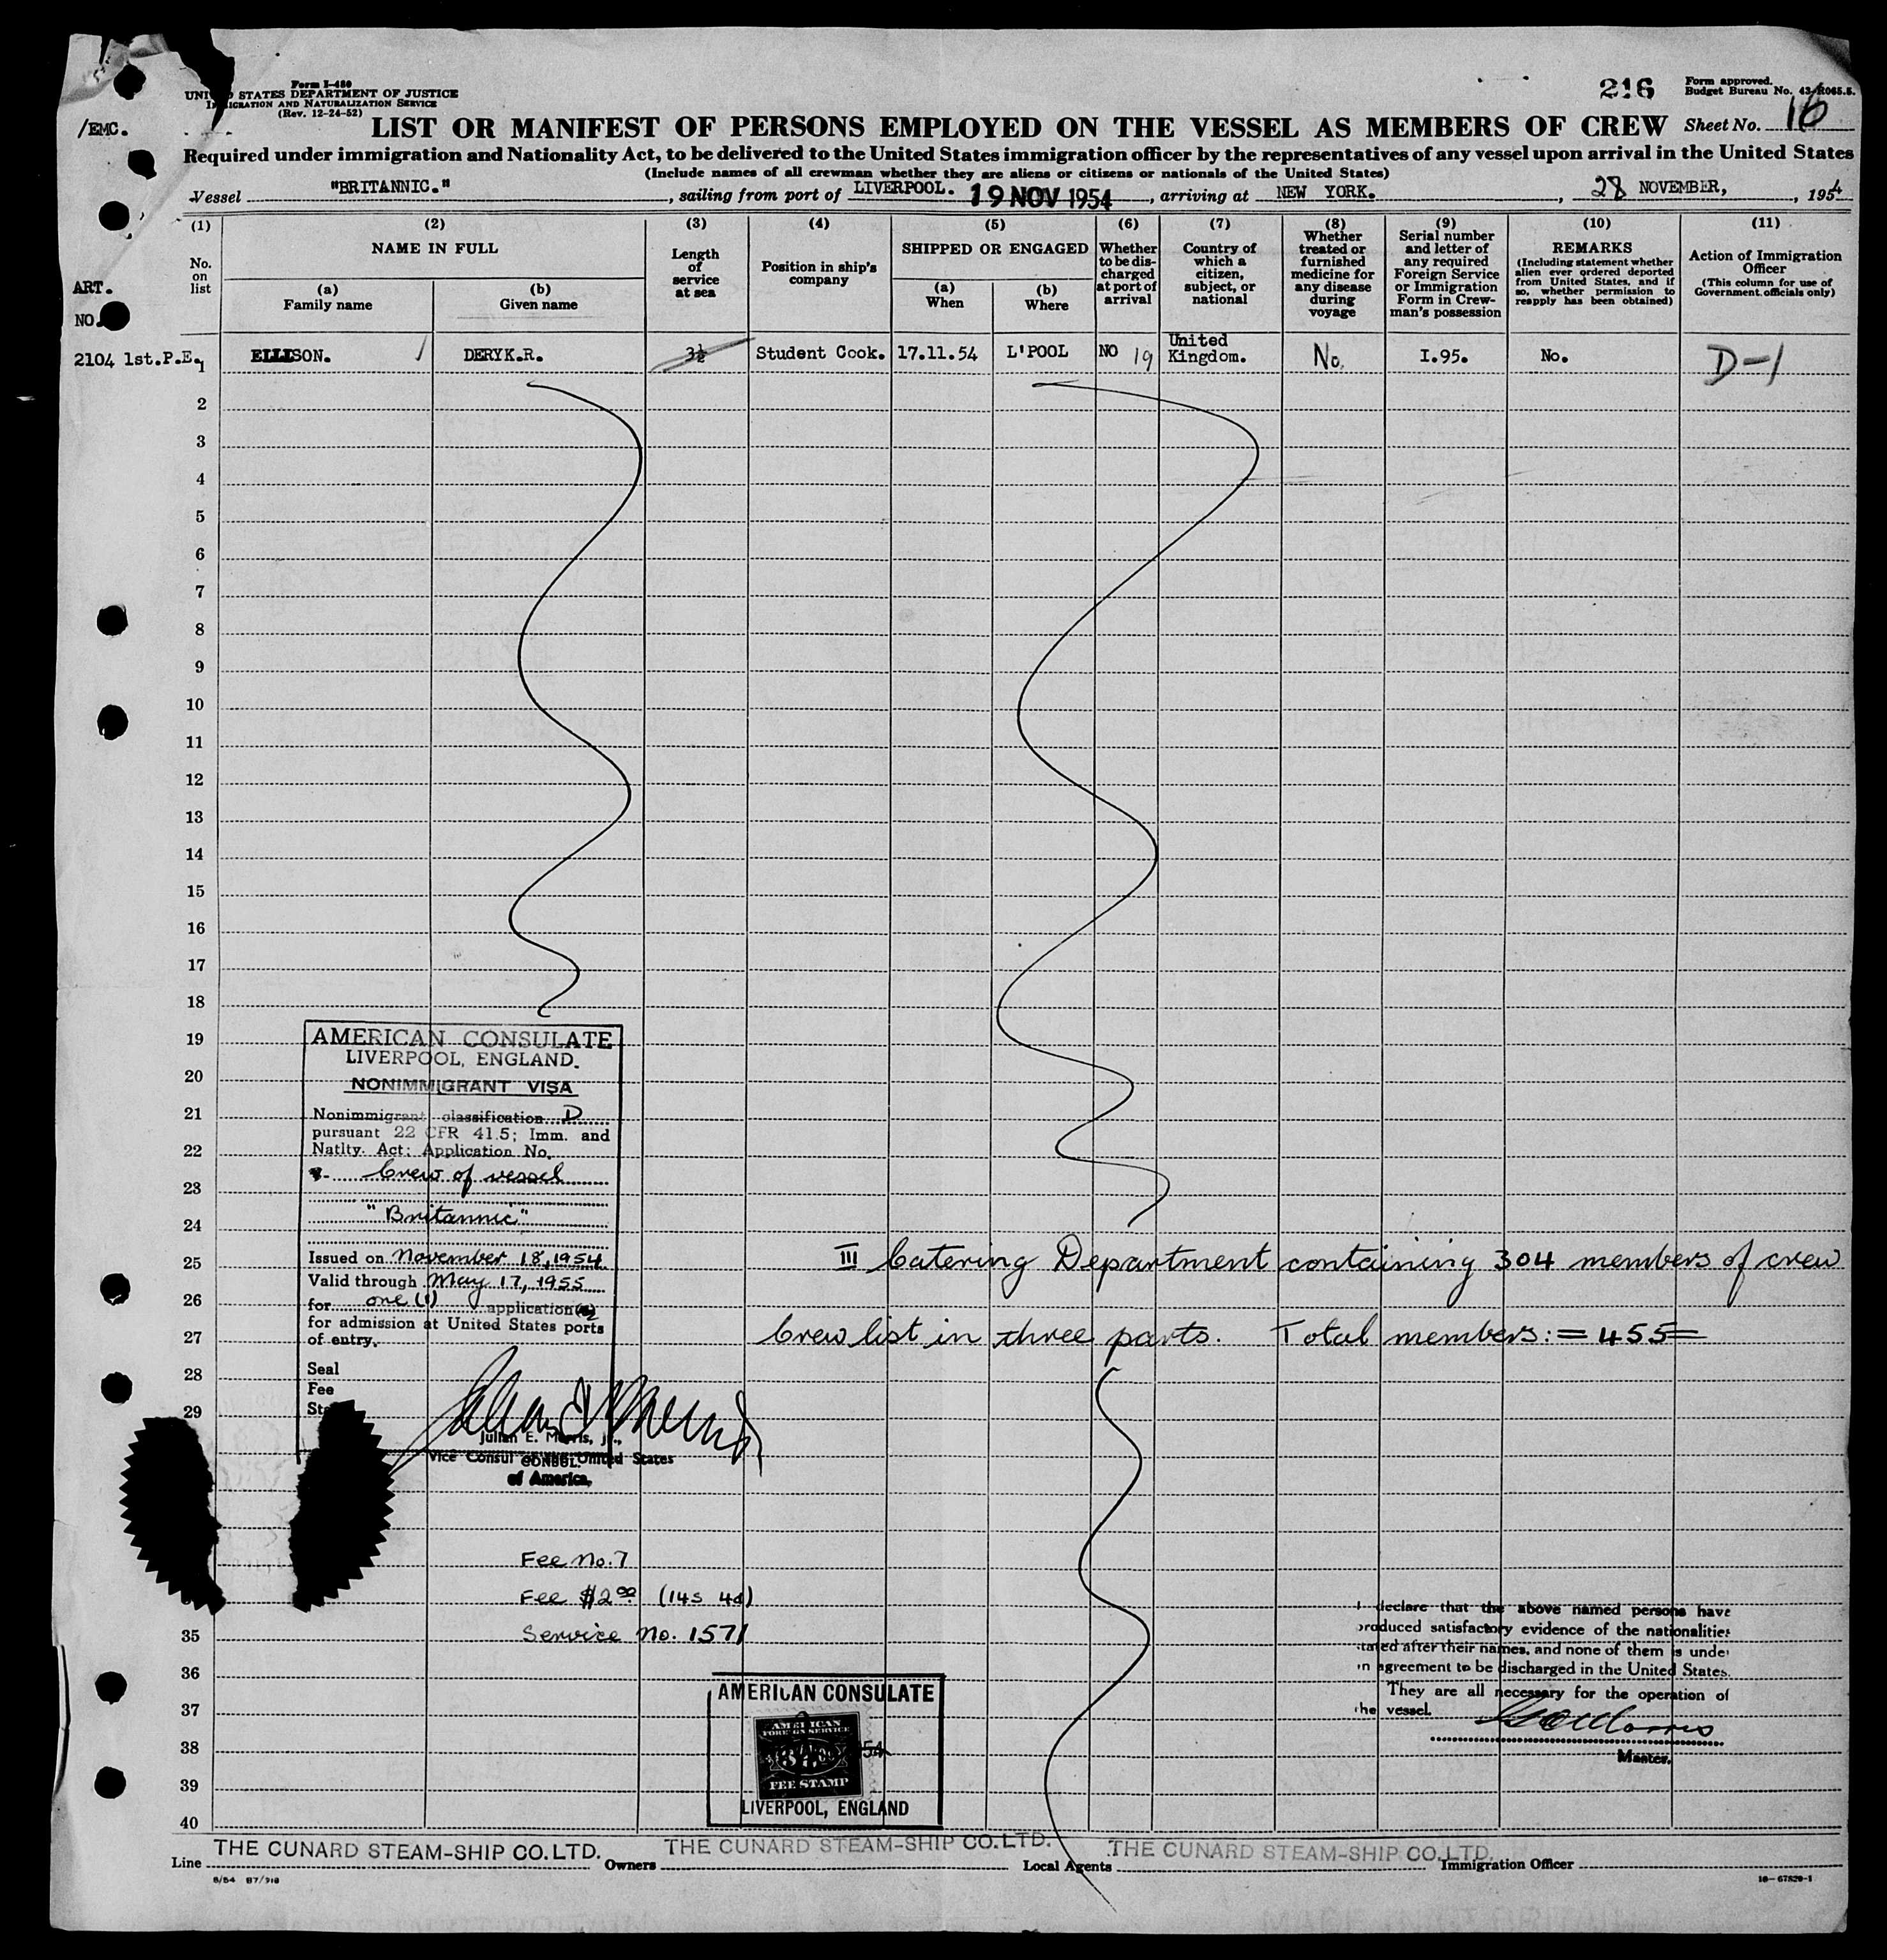 Form I-480
UNITED STATES DEPARTMENT OF JUSTICE
IMMIGRATION AND NATURALIZATION SERVICE
(Rev. 12-24-52)
216
Form approved.
Budget Bureau No. 43-R065.5.
/EMC.
LIST OR MANIFEST OF PERSONS EMPLOYED ON THE VESSEL AS MEMBERS OF CREW
Sheet No. 16
Required under immigration and Nationality Act, to be delivered to the United States immigration officer by the representatives of any vessel upon arrival in the United States
(Include names of all crewman whether they are aliens or citizens or nationals of the United States)
Vessel "BRITANNIC." , sailing from port of LIVERPOOL. 19 NOV 1954 , arriving at NEW YORK. , 28 NOVEMBER, , 1954
(1) (2) (3) (4) (5) (6) (7) (8) (9) (10) (11)
No. on list
NAME IN FULL
(a) Family name
(b) Given name
Length of service at sea
Position in ship's company
SHIPPED OR ENGAGED
(a) When
(b) Where
Whether to be discharged at port of arrival
Country of which a citizen, subject, or national
Whether treated or furnished medicine for any disease during voyage
Serial number and letter of any required Foreign Service or Immigration Form in Crewman's possession
REMARKS
(Including statement whether alien ever ordered deported from United States, and if so, whether permission to reapply has been obtained)
Action of Immigration Officer
(This column for use of Government officials only)
ART.
NO.
2104 1st.P.E. 1 ELLISON. DERYK.R. 3½ Student Cook. 17.11.54 L'POOL NO 19 United Kingdom. No. I.95. No. D-1
2
3
4
5
6
7
8
9
10
11
12
13
14
15
16
17
18
19
20
21
22
23
24
25
26
27
28
29
35
36
37
38
39
40
AMERICAN CONSULATE
LIVERPOOL, ENGLAND.
NONIMMIGRANT VISA
Nonimmigrant classification D
pursuant 22 CFR 41.5; Imm. and
Natlty. Act; Application No.
Crew of vessel
"Britannic"
Issued on November 18, 1954
Valid through May 17, 1955
for one (1) application
for admission at United States ports
of entry.
Seal
Fee
Julian E. Morris, jr.,
Vice Consul of the United States
of America.
III Catering Department containing 304 members of crew
Crew list in three parts. Total members: = 455 =
Fee No. 7
Fee $2.00 (14s 4d)
Service No. 1571
I declare that the above named persons have
produced satisfactory evidence of the nationalities
stated after their names, and none of them is under
an agreement to be discharged in the United States.
They are all necessary for the operation of
the vessel.
Master.
AMERICAN CONSULATE
AMERICAN
FOREIGN SERVICE
FEE STAMP
LIVERPOOL, ENGLAND
THE CUNARD STEAM-SHIP CO. LTD. THE CUNARD STEAM-SHIP CO. LTD. THE CUNARD STEAM-SHIP CO. LTD.
Line Owners Local Agents Immigration Officer
8/54 B7/918
16-67829-1